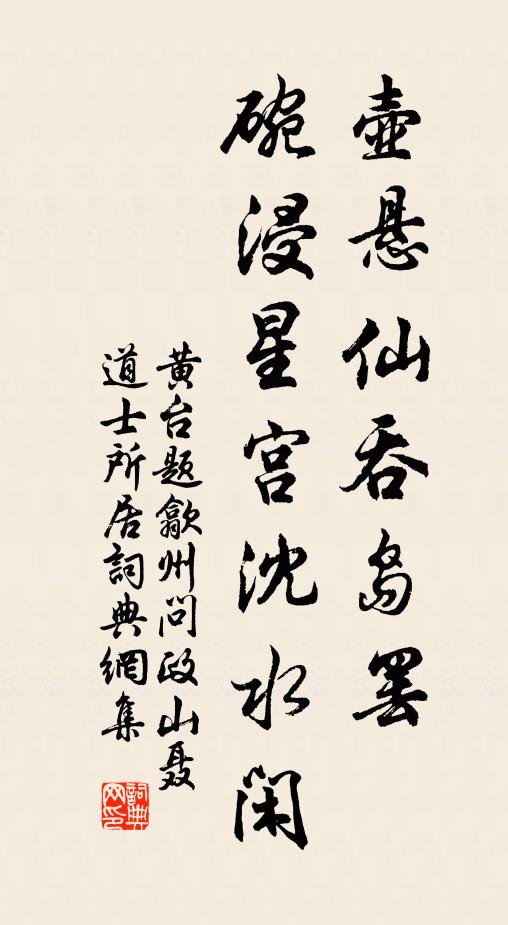 壺悬仙吞岛罢
碗浸星宫沈水闲
黄台题歙州问政山聂
道士所居詞典網集
詞典网印